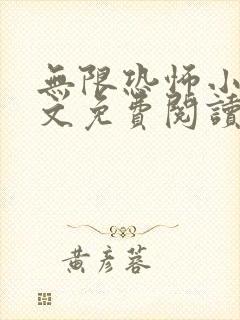 無限恐怖小
文免費閱讀
黃彥蓉